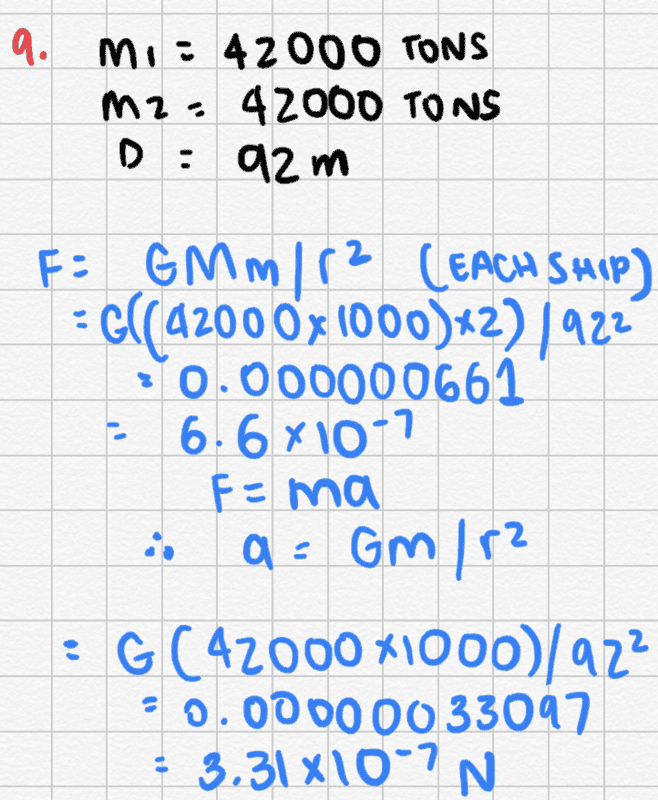 9. M1 = 42000 TONS
M2 = 42000 TONS
D = 92m
F = GMm/r² (EACH SHIP)
= G((42000×1000)×2)/92²
= 0.000000661
= 6.6×10⁻⁷
F = ma
∴ a = Gm/r²
= G(42000×1000)/92²
= 0.00000033097
= 3.31×10⁻⁷ N